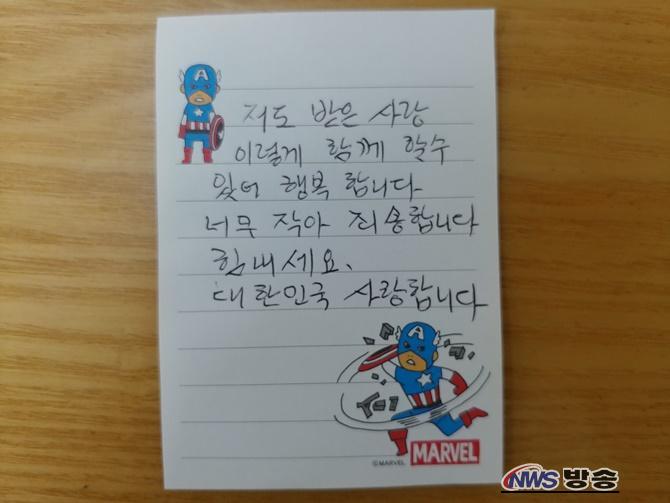 저도 받은 사랑
이렇게 함께 할수
있어 행복 합니다
너무 작아 죄송합니다
힘내세요.
대한민국 사랑합니다
A
A
©MARVEL
MARVEL
NWS 방송